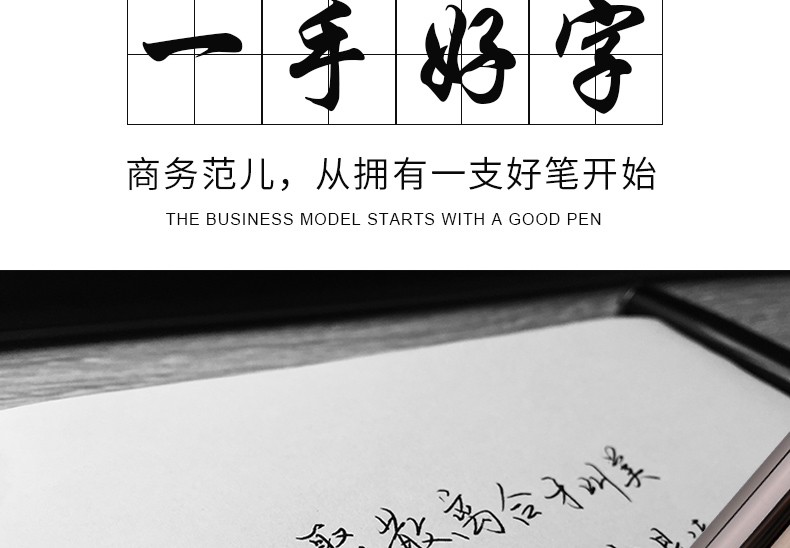 一手好字
商务范儿，从拥有一支好笔开始
THE BUSINESS MODEL STARTS WITH A GOOD PEN
聚散离合才叫美